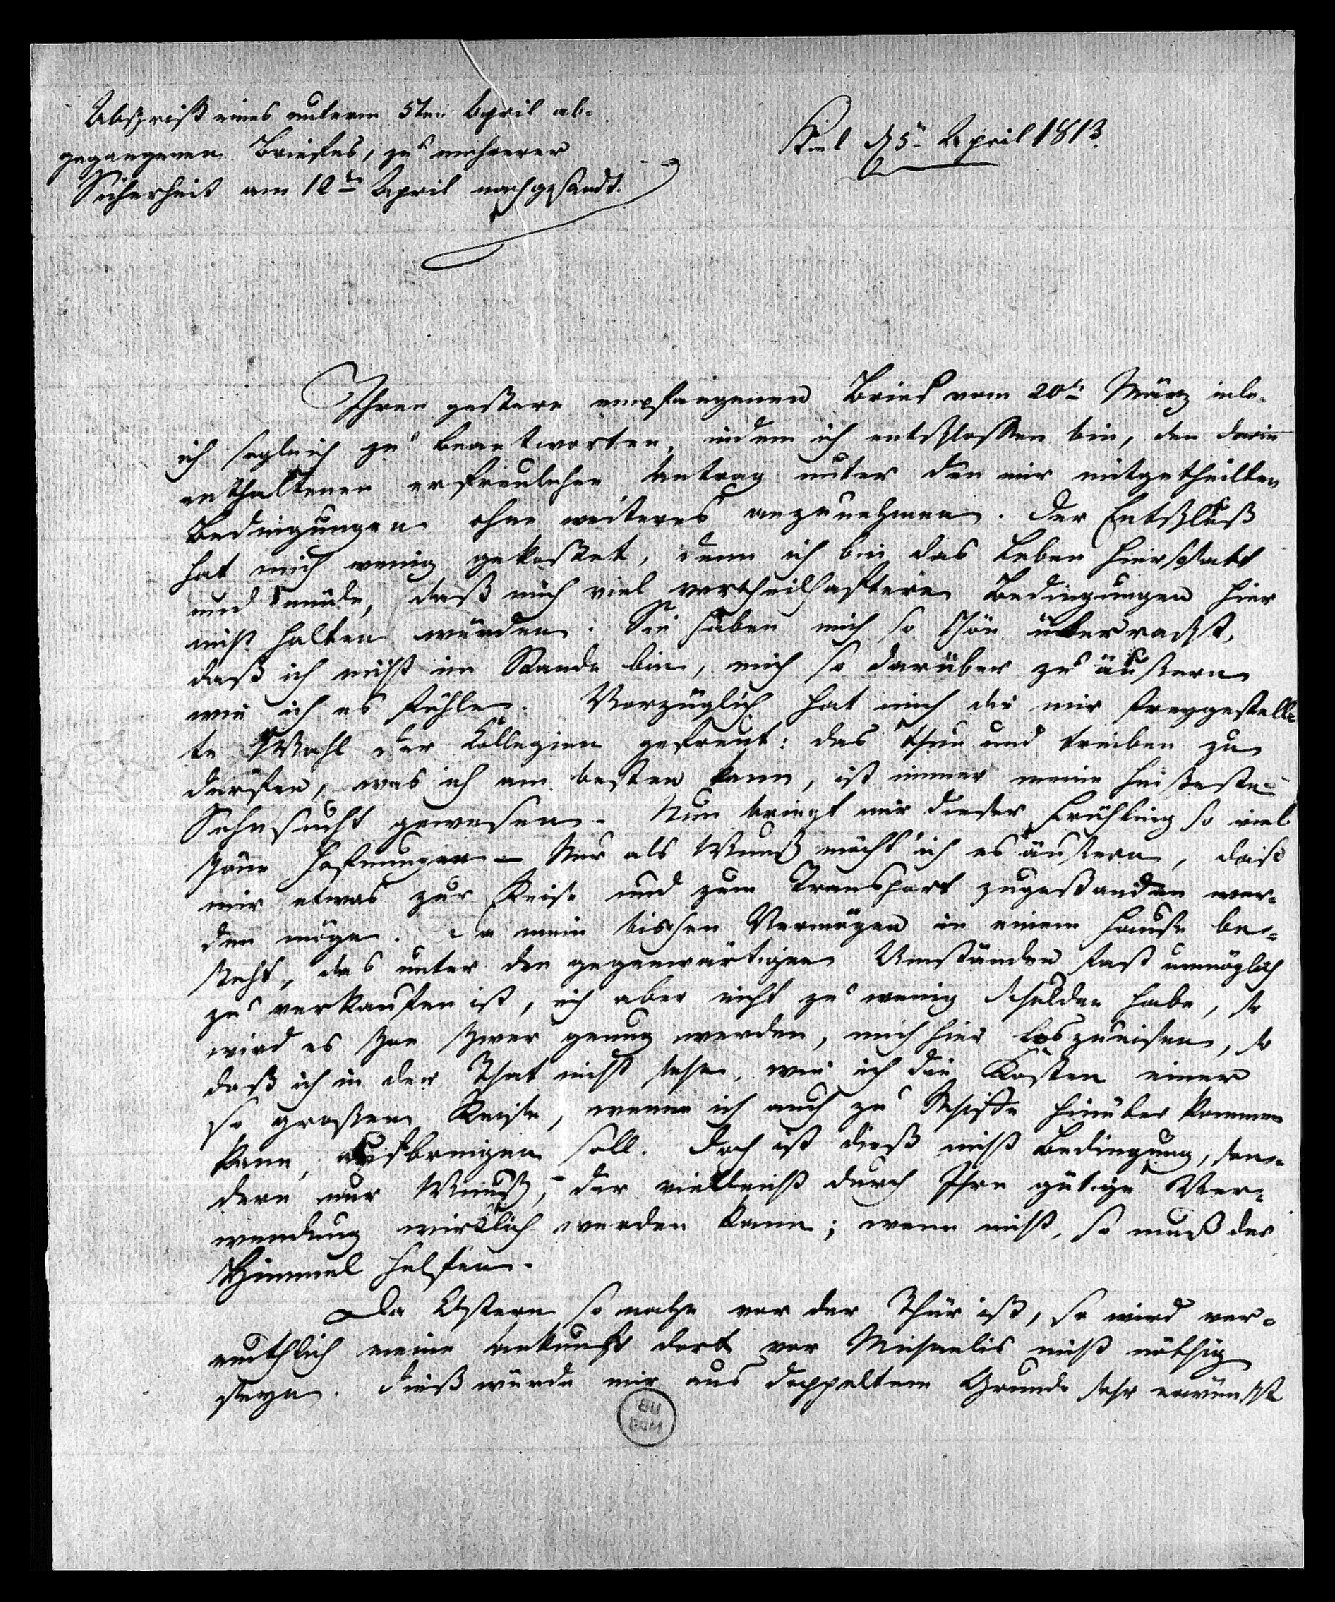 Abschrift eines unterm 5ten April ab-
gegangenen Briefes, zu mehrerer
Sicherheit am 12ten April nachgesandt.
Kiel d. 5ten April 1813.
Ihren gestern empfangenen Brief vom 20ten März eile
ich sogleich zu beantworten, indem ich entschlossen bin, den darin
enthaltenen erfreulichen Antrag unter den mir mitgetheilten
Bedingungen ohne weiteres anzunehmen. Der Entschluß
hat mich wenig gekostet, denn ich bin das Leben hier so satt
und müde, daß mich viel vortheilhaftere Bedingungen hier
nicht halten würden. Sie haben mich so schön überrascht,
daß ich nicht im Stande bin, mich so darüber zu äußern
wie ich es fühle. Vorzüglich hat mich die mir freygestell-
te Wahl der Collegien gefreut: das Thun und treiben zu
dürfen, was ich am besten kann, ist immer meine heißeste
Sehnsucht gewesen. Nun bringt mir dieser Frühling so viel
schöne Hofnungen – Nur als Wunsch möcht' ich es äußern, daß
mir etwas zur Reise und zum Transport zugestanden wer-
den möge. Da mein bischen Vermögen in einem Hause be-
steht, das unter den gegenwärtigen Umständen fast unmöglich
zu verkaufen ist, ich aber nicht zu wenig Schulden habe, so
wird es schon schwer genug werden, mich hier loszureißen, so
daß ich in der That nicht sehe, wie ich die Kosten einer
so großen Reise, wenn ich auch zu Schiffe hinüber kommen
kann, aufbringen soll. Doch ist dieß nicht Bedingung, son-
dern nur Wunsch, der vielleicht durch Ihre gütige Ver-
wendung wirklich werden kann; wenn nicht, so muß der
Himmel helfen.
Da Ostern so nahe vor der Thür ist, so wird ver-
muthlich meine Ankunft dort vor Michaelis nicht nöthig
seyn. Dieß würde mir aus doppeltem Grunde sehr erwünscht